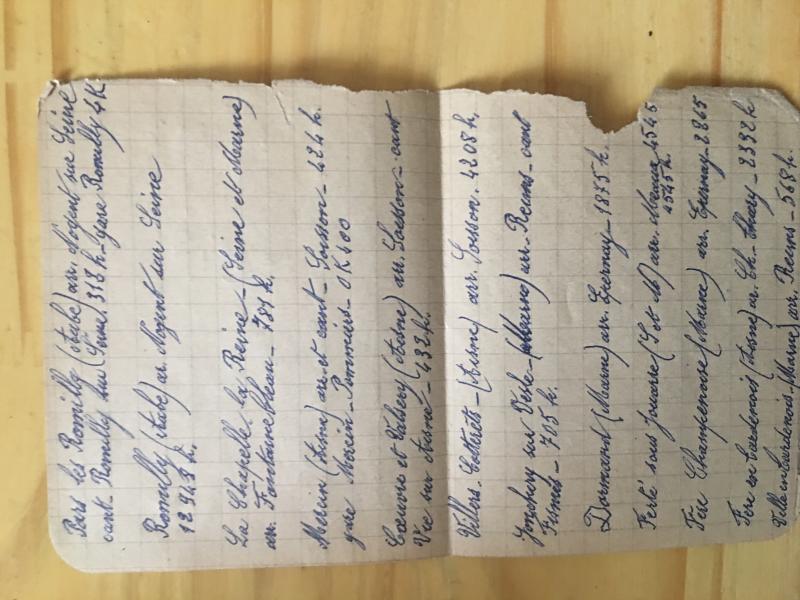 Pars les Romilly (Aube) arr. Nogent sur Seine
cant. Romilly sur Seine. 318 h. Gare Romilly 4K
Romilly (Aube) ar. Nogent sur Seine
12943 h.
La Chapelle la Reine - (Seine et Marne)
arr. Fontainebleau - 781 h.
Mercin (Aisne) arr. et cant - Soisson - 424 h.
gare Mercin - Pommiers - 0K600
Cœuvres et Valsery (Aisne) arr. Soisson - cant
Vic sur Aisne - 432 h.
Villers. Cotterêts - (Aisne) arr. Soisson. 4208 h.
sur Vesle - (Marne) arr - Reims - cant
Fismes - 705 h.
Dormans (Marne) arr. Epernay - 1875 h.
Ferté sous Jouarre (S et M) arr. Meaux 4545
4545 h.
Fère Champenoise (Marne) arr. Epernay - 2265
Fère en Tardenois (Aisne) ar. Ch. Thiery - 2332 h
Ville en Tardenois (Marne) arr. Reims - 568 h.